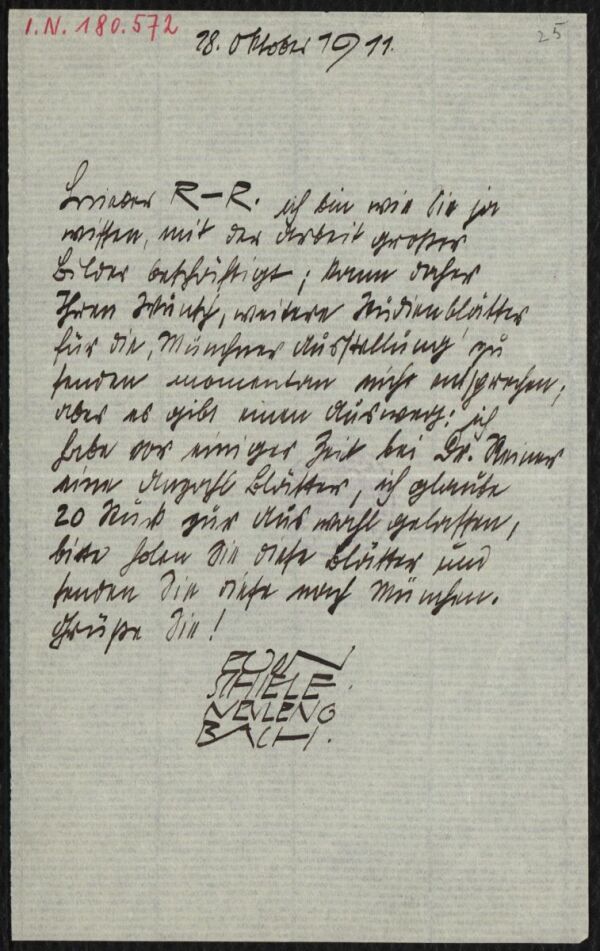 I.N. 180.572
25
28. Oktober 1911.
Lieber R–R. ich bin wie Sie ja
wissen, mit der Arbeit großer
Bilder beschäftigt; kann daher
Ihren Wunsch, weitere Studienblätter
für die „Münchner Ausstellung“ zu
senden momentan nicht entsprechen;
aber es gibt einen Ausweg: ich
habe vor einiger Zeit bei Dr. Reiner
eine Anzahl Blätter, ich glaube
20 Stück zur Auswahl gelassen,
bitte holen Sie diese Blätter und
senden Sie diese nach München.
Grüße Sie!
EGON
SCHIELE.
NEULENG
BACH.